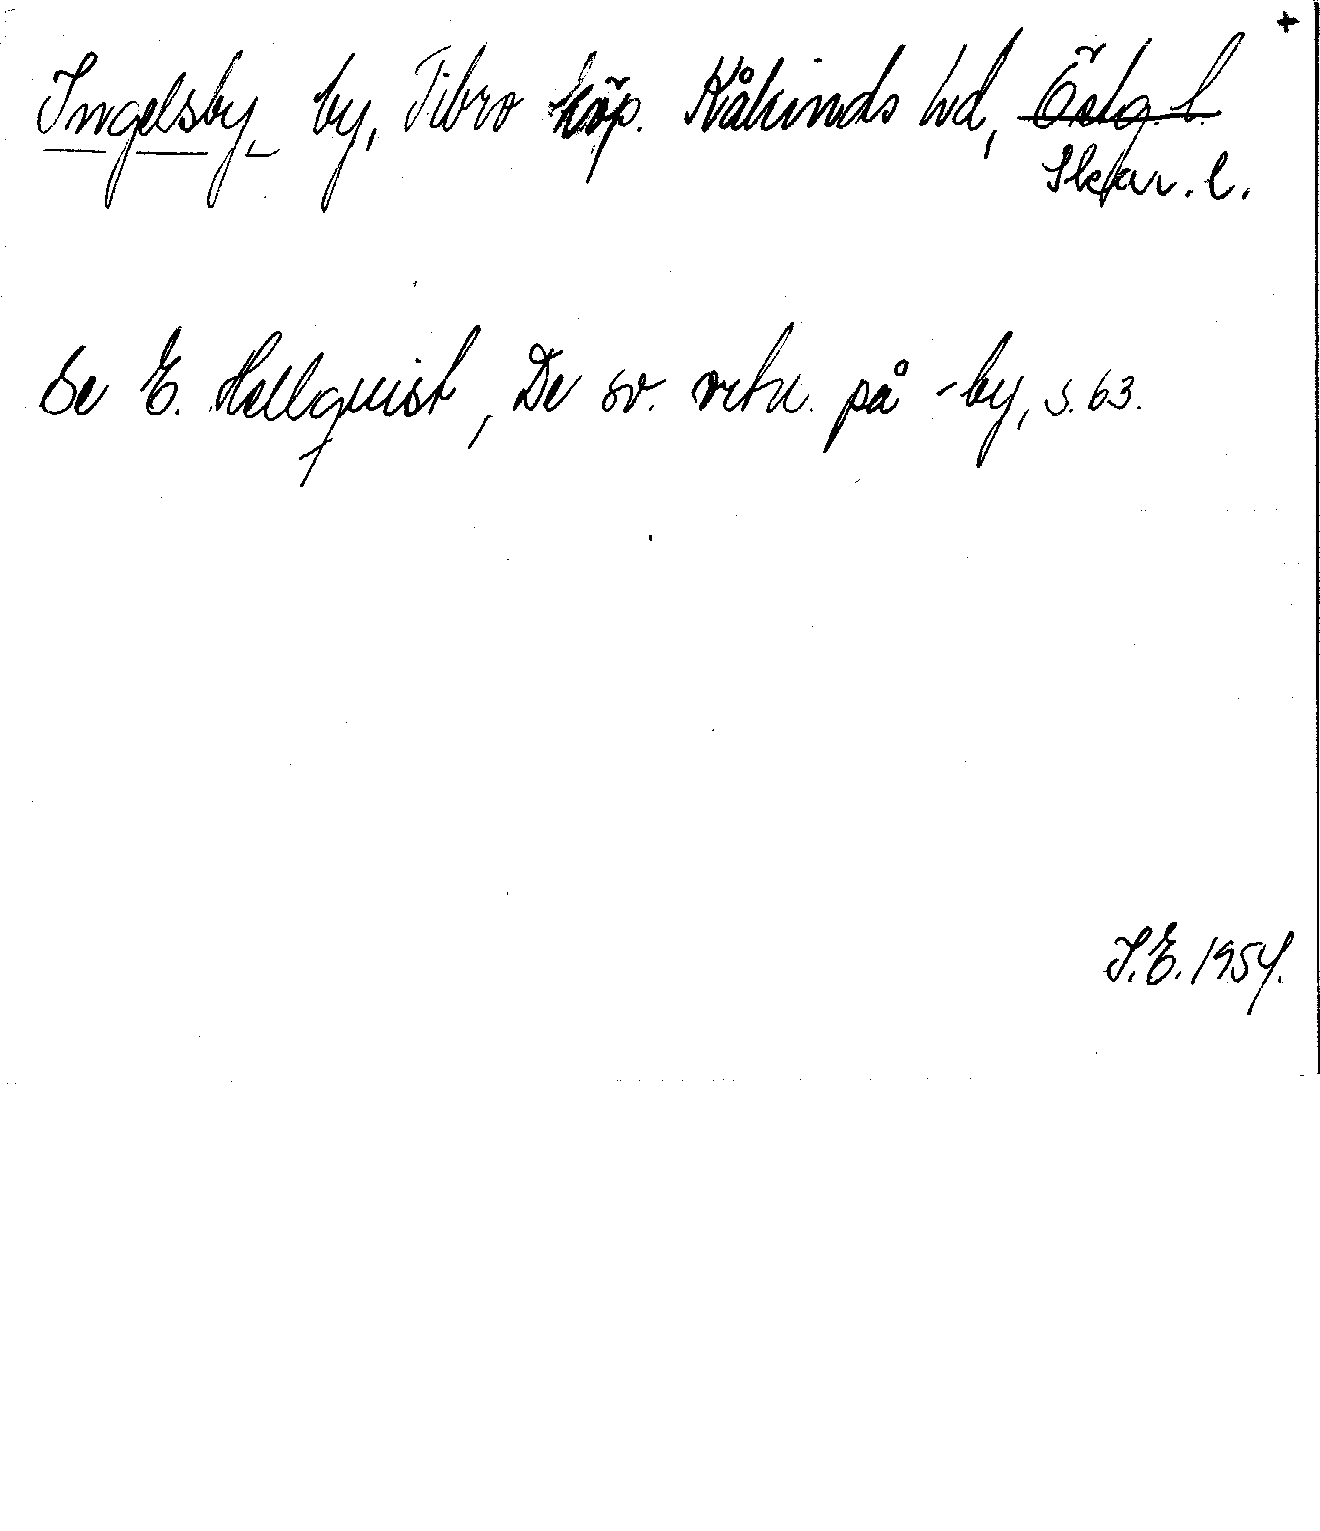 +
Ingelsby by, Tibro köp. Kåkinds hd, Östg. l.
Skar. l.
Se E. Hellquist, De sv. ortn. på -by, s. 63.
I.E. 1954.